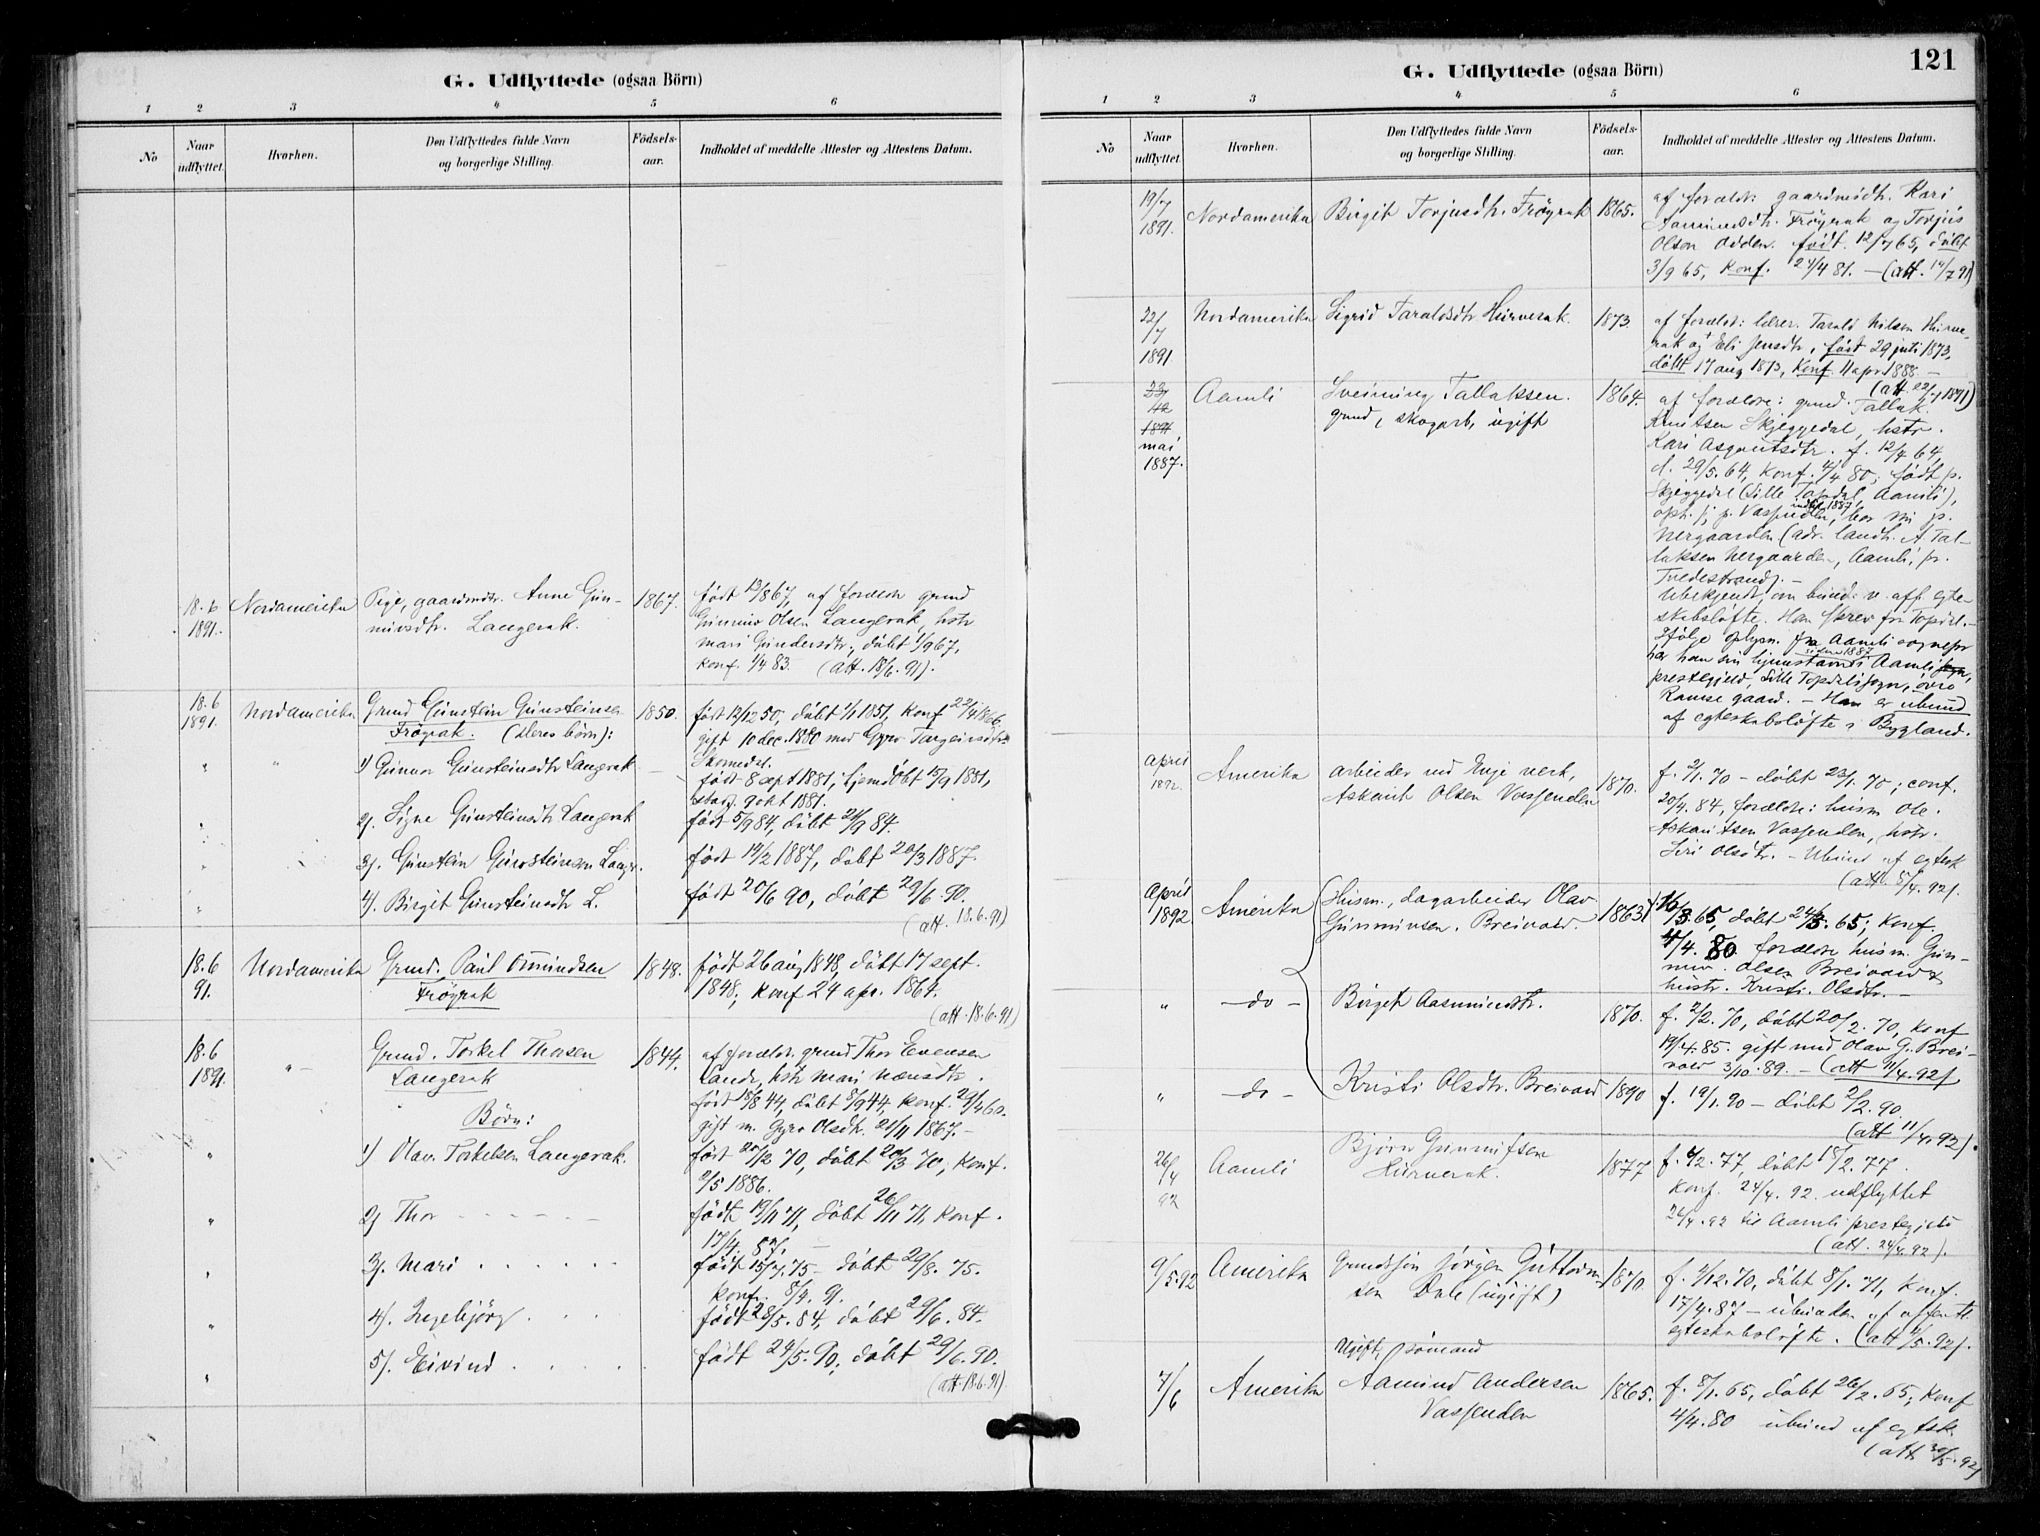 G. Udflyttede (ogsaa Börn)
1 2 3 4 5 6
No
Naar udflyttet.
Hvorhen.
Den Udflyttedes fulde Navn og borgerlige Stilling.
Födsels-aar.
Indholdet af meddelte Attester og Attestens Datum.
18.6 1891. Nordamerika Pige, gaardmdtr. Anne Gun- 1867. født 13/8 67, af foreldr grmd
mivsdtr. Langerak. Gunmiv Olsen Langerak, hstr
mari Gundersdtr., døbt 1/9 67,
konf. 1/4 83. (att. 18/6. 91).
18.6 1891. Nordamerika Grmd Gunstein Gunsteinsen 1850. født 12/12 50, døbt 1/1 1851, konf 22/4 1866.
Frøyrak. (deres børn): gift 10 dec. 1880 med Gyro Targeirsdtr
Skomedal.
" " 1) Gunvor Gunsteinsdtr Langerak — født 8 sept 1881, hjemdøbt 15/9 1881,
9 okt 1881.
" 2). Signe Gunsteinsdtr Langerak født 5/9 84, døbt 21/9 84.
" 3). Gunstein Gunsteinsen Langer. født 19/2 1887, døbt 20/3 1887.
" 4). Birgit Gunsteinsdtr L. født 20/6 90, døbt 29/6. 90.
(att. 18.6.91)
18.6 91. Nordamerika Grmd. Paul Omundsen 1848. født 26 aug 1848, døbt 17 sept.
Frøyrak 1848; konf 24 apr. 1864.
(att. 18.6.91)
18.6 1891. " Grmd. Torkel Thorsen 1844. af foreldr. grmd Thor Evensen
Langerak Lande, hstr mari
født 18/8 44, døbt 8/9 44, konf. 29/4 60.
Børn: gift m. Gyro Olsdtr. 21/11 1867. —
" 1) Olav Torkelsen Langerak. født 20/2 70, døbt 20/3 70, konf.
9/5 1886.
" 2) Thor født 19/11 71, døbt 26/11 71, konf.
17/4. 87.
" 3). Mari født 15/7. 75 - døbt 29/8. 75.
konf. 5/4. 91.
" 4). Ingebjörg født 28/5. 84, døbt 29/6. 84.
" 5). Eivind født 24/5. 90, døbt 29/6. 90.
(att. 18.6.91)
G. Udflyttede (ogsaa Börn)
121
1 2 3 4 5 6
No
Naar udflyttet.
Hvorhen.
Den Udflyttedes fulde Navn og borgerlige Stilling.
Födsels-aar.
Indholdet af meddelte Attester og Attestens Datum.
19/7 1891. Nordamerika Birgit Torjusdtr. Frøyrak 1865. af foreldr. gaardmdtr. Kari
Aanundsdtr. Frøyrak og Torjus
Olsen Odden. født. 12/7 65, døbt
3/9 65, konf. 24/4 81. — (att. 19/7 91)
22/7 1891 Nordamerika Sigrid Taraldsdtr Hurverak. 1873. af foreldr: lærer. Tarald Nilsen Hurve-
rak og Eli Jensdtr, født 29 juli 1873,
døbt 17 aug 1873, konf 11 apr 1888 —
(att. 22/7 1891)
mai 1887. Aamli Sveinung Tallaksen. 1864. af foreldre: grmd. Tallak
grmd, skogarb, ugift Knutsen Skjeggedal, hstr.
Kari Asgautsdtr. f. 12/4 64,
d. 29/5. 64, konf. 4/4 80, født p.
Skjeggedal (Lille Topdal, Aamli),
oph. p. Vassenden, indtil 1887, bor nu p.
Nergaarden (adr. landh. A Tal-
laksen Nergaarden, Aamli, pr.
Tvedestrand). —
Ubekjendt, om bund: v. aff. egte-
skabsløfte. Han skrev fra Topdal. —
Ifølge oplysn. fra Aamli sognepr
har han sin hjemstavn siden 1887 i Aamli
prestegjeld, Lille Topdals sogn, øvre
Ramse gaard. — Han er ubund
af egteskabsløfte i Bygland.
april 1892. Amerika arbeider ved Evje verk, 1870. f. 2/1. 70 — døbt 23/1. 70; conf.
Askaut Olsen Vassenden 20/4. 84, foreldre: husm Ole
Askautsen Vassenden, hstr.
Siri Olsdtr. — Ubund af egtesk
(att. 8/4. 92).
april 1892 Amerika Husm., dagarbeider Olav 1863 16/3. 65, døbt 24/3. 65; konf.
Gunmivsen. Breivold. 4/4. 80 foreldre husm Gun-
miv. Olsen Breivold &
hustr. Kristi. Olsdtr. —
" — do — Birget Aasmundsdtr. 1870. f. 2/2. 70, døbt 20/2. 70, konf
19/4. 85. gift med Olav G. Brei-
vold 3/10. 89. — (att 11/4. 92)
" — do — Kristi Olsdtr. Breivold 1890 f. 19/1. 90 — døbt 2/2. 90.
(att 11/4. 92).
26/4 92 Aamli Bjørn Gunmifsen 1877 f. 4/2. 77, døbt 18/2. 77.
Hurverak. konf. 24/4. 92. udflyttet
26/4. 92 til Aamli prestegjeld
(att. 24/4. 92).
9/5. 92 Amerika Grmdssøn Jørgen Guttorm- 1870. f. 4/12. 70, døbt 8/1. 71, konf.
sen Dale (ugift) 17/4. 87 — ubunden af offentl.
egteskabsløfte. (att 9/5. 92).
7/6 Amerika Ugift sømand
Aamund Andersen 1865. f. 8/1. 65, døbt 26/2. 65, konf
Vassenden 4/4. 80 ubund af egtsk.
(att. 30/5. 92)